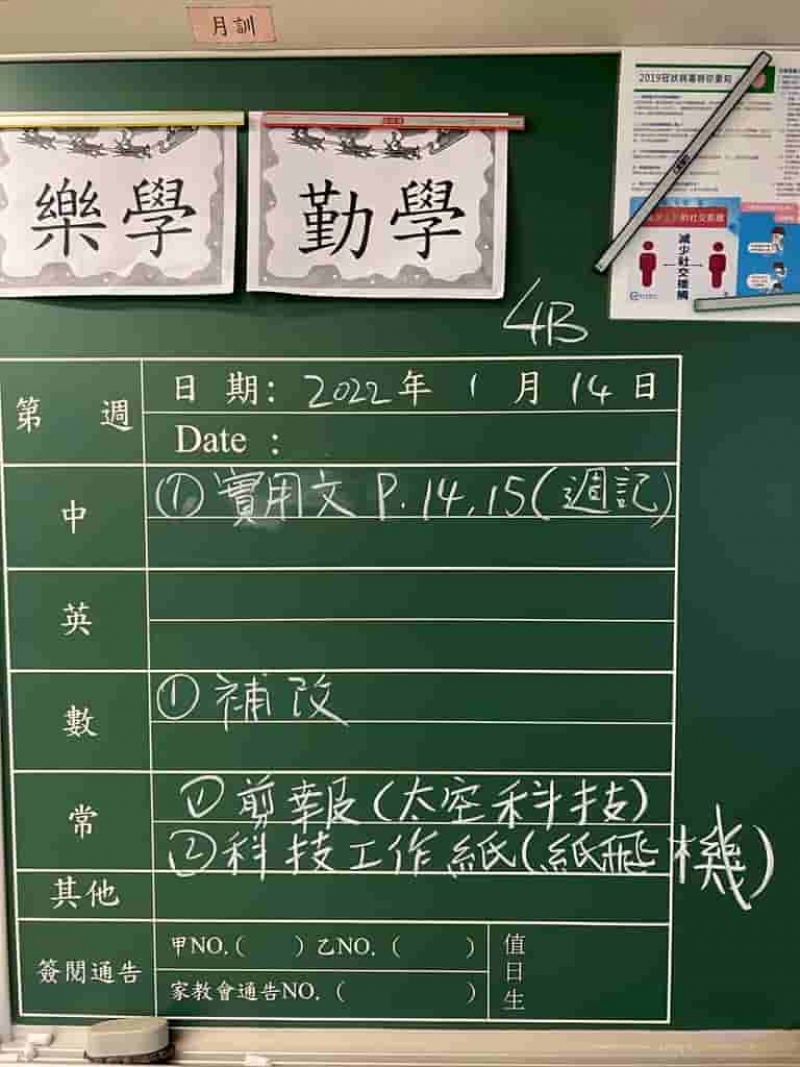 月訓
樂學
勤學
2019冠狀病毒病你要知
減少社交接觸
4B
第 週
日 期: 2022年 1 月 14 日
Date :
中
① 實用文 P. 14, 15 (週記)
英
數
① 補改
常
① 剪報(太空科技)
② 科技工作紙(紙飛機)
其他
簽閱通告
甲NO. ( ) 乙NO. ( )
家教會通告NO. ( )
值日生